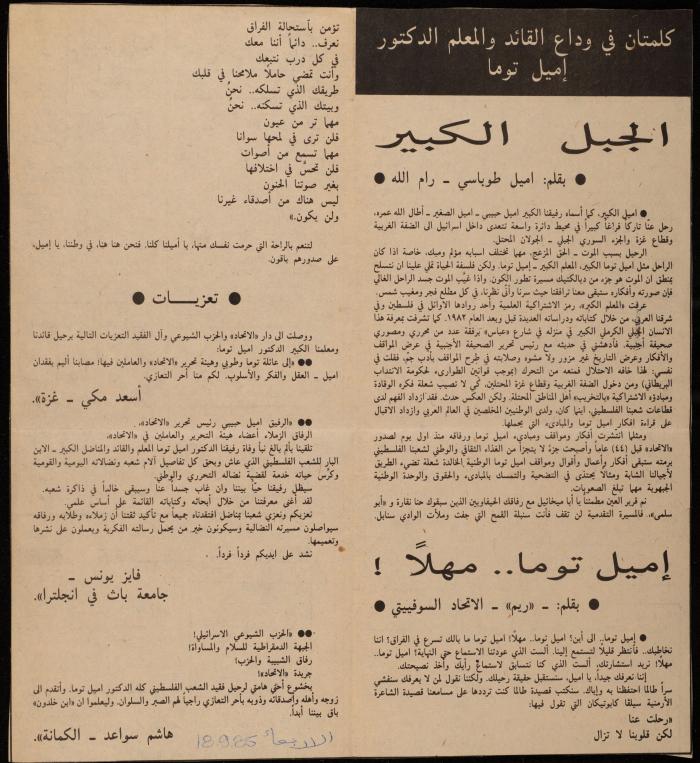 كلمتان في وداع القائد والمعلم الدكتور
إميل توما
الجبل الكبير
● بقلم: اميل طوباسي ـ رام الله ●
● اميل الكبير، كما أسماه رفيقنا الكبير اميل حبيبي ـ اميل الصغير ـ أطال الله عمره،
رحل عنّا تاركاً فراغاً كبيراً في محيط دائرة واسعة تتعدى داخل اسرائيل الى الضفة الغربية
وقطاع غزة والجزء السوري الجبلي ـ الجولان المحتل.
الرحيل بسبب الموت ـ الحق المزعج، مهما تختلف اسبابه مؤلم ومبك، خاصة اذا كان
الراحل مثل اميل توما الكبير، المعلم الكبير ـ إميل توما. ولكن فلسفة الحياة تملي علينا ان نتسلح
بمنطق ان الموت هو جزء من ديالكتيك مسيرة تطور الكون. واذا غيّب الموت جسد الراحل الغالي
فإن صورته وأفكاره ستبقى معنا ترافقنا حيث سرنا وأنّى نظرنا، في كل مطلع فجر ومغيب شمس.
عرفت «المعلم الكبير»، رمز الاشتراكية العلمية وأحد روادها الاوائل في فلسطين وفي
شرقنا العربي، من خلال كتاباته ودراساته العديدة قبل وبعد العام ١٩٨٢. كما تشرفت بمعرفة هذا
الانسان الجبلي الكرملي الكبير في منزله في شارع «عباس» برفقة عدد من محرري ومصوري
صحيفة أجنبية. فأدهشني في حديثه مع رئيس تحرير الصحيفة الأجنبية في عرض المواقف
والأفكار وعرض التاريخ غير مزور ولا مشوه وصلابته في طرح المواقف بأدب جم، فقلت في
نفسي: لهذا خافه الاحتلال فمنعه من التحرك (بموجب قوانين الطوارىء لحكومة الانتداب
البريطاني) ومن دخول الضفة الغربية وقطاع غزة المحتلين، كي لا تصيب شعلة فكره الوقادة
ومبادؤه الاشتراكية «بالتخريب» أهل المناطق المحتلة. ولكن العكس حدث. فقد ازداد الفهم لدى
قطاعات شعبنا الفلسطيني، اينما كان، ولدى الوطنيين المخلصين في العالم العربي وازداد الاقبال
على قراءة افكار اميل توما والمبادىء التي يحملها.
ومثلما انتشرت أفكار ومواقف ومبادىء اميل توما ورفاقه منذ اول يوم لصدور
«الاتحاد» قبل (٤٤) عاماً وأصبحت جزءً لا يتجزأ من الغذاء الثقافي والوطني لشعبنا الفلسطيني
برمته ستبقى أفكار وأعمال وأقوال ومواقف اميل توما الوطنية الخالدة شعلة تضيء الطريق
لأجيالنا الشابة ومثالاً يحتذى في التضحية والتمسك بالمبادىء والحقوق والوحدة الوطنية
الجبهوية مهما تبلغ الصعوبات.
نم قرير العين مطمئناً يا أبا ميخائيل مع رفاقك الحيفاويين الذين سبقوك حنا نقارة و «أبو
سلمى». فالمسيرة التقدمية لن تقف فأنت سنبلة القمح التي جفت وملأت الوادي سنابل.
إميل توما.. مهلاً !
● بقلم: ـ «ريم» ـ الاتحاد السوفييتي ●
● إميل توما.. الى أين؟ اميل توما.. مهلاً! اميل توما ما بالك تسرع في الفراق؟ اننا
نخاطبك.. فأنتظر قليلاً لتستمع إلينا. ألست الذي عودتنا الاستماع حتى النهاية؟ اميل توما..
مهلاً! نريد استشارتك، ألست الذي كنا نتسابق لاستماع رأيك وأخذ نصيحتك.
إننا نعرفك جيداً، يا اميل، ستستقبل حقيقة رحيلك. ولكننا نقول لمن لا يعرفك سنفشي
سراً طالما احتفظنا به وإياك. سنكتب قصيدة طالما كنت ترددها على مسامعنا قصيدة الشاعرة
الأرمنية سيلفا كابوتيكان التي تقول فيها:
«رحلت عنا
لكن قلوبنا لا تزال
تؤمن بأستحالة الفراق
نعرف.. دائماً أننا معك
في كل درب نتبعك
وأنت تمضي حاملاً ملامحنا في قلبك
طريقك الذي تسلكه.. نحنُ
وبيتك الذي تسكنه.. نحنُ
مهما تر من عيون
فلن ترى في لمحها سوانا
مهما تسمع من أصوات
فلن تحسّ في اختلافها
بغير صوتنا الحنون
ليس هناك من أصدقاء غيرنا
ولن يكون.»
لتنعم بالراحة التي حرمت نفسك منها، يا أميلنا كلنا. فنحن هنا هنا، في وطننا، يا إميل،
على صدورهم باقون.
● تعزيــات ●
ووصلت الى دار «الاتحاد» والحزب الشيوعي وآل الفقيد التعزيات التالية برحيل قائدنا
ومعلمنا الكبير الدكتور اميل توما:
●● «إلى عائلة توما وطوبي وهيئة تحرير «الاتحاد» والعاملين فيها! مصابنا أليم بفقدان
اميل ـ العقل والفكر والأسلوب. لكم منا أحر التعازي.
أسعد مكي ـ غزة».
●● «الرفيق اميل حبيبي رئيس تحرير «الاتحاد»،
الرفاق الزملاء أعضاء هيئة التحرير والعاملين في «الاتحاد»،
تلقينا بألم بالغ نبأ وفاة رفيقنا الدكتور اميل توما المعلم والقائد والمناضل الكبير ـ الابن
البار للشعب الفلسطيني الذي عاش وبحق كل تفاصيل آلام شعبه ونضالاته اليومية والقومية
وكرّس حياته خدمة لقضية نضاله التحرري والوطني.
سيظل رفيقنا حيّاً بيننا وان غاب جسداً عنا وسيبقى خالداً في ذاكرة شعبه.
لقد أغنى معرفتنا من خلال أبحاثه وكتاباته القائمة على أساس علمي.
نعزيكم ونعزي شعبنا بمناضل افتقدناه جميعاً مع تأكيد ثقتنا أن زملاءه وطلابه ورفاقه
سيواصلون مسيرته النضالية وسيكونون خير من يحمل رسالته الفكرية ويعملون على نشرها
وتعميمها.
نشد على ايديكم فرداً فرداً.
فايز يونس ـ
جامعة باث في انجلترا».
●● «الحزب الشيوعي الاسرائيلي!
الجبهة الدمقراطية للسلام والمساواة!
رفاق الشبيبة والحزب!
جريدة «الاتحاد»!
بخشوع أحني هامتي لرحيل فقيد الشعب الفلسطيني كله الدكتور اميل توما. وأتقدم الى
زوجه وأهله وأصدقائه وذويه بأحر التعازي راجياً لهم الصبر والسلوان. وليعلموا ان «ابن خلدون»
باق بيننا أبداً.
هاشم سواعد ـ الكمانة».
الاربعاء 18.9.85